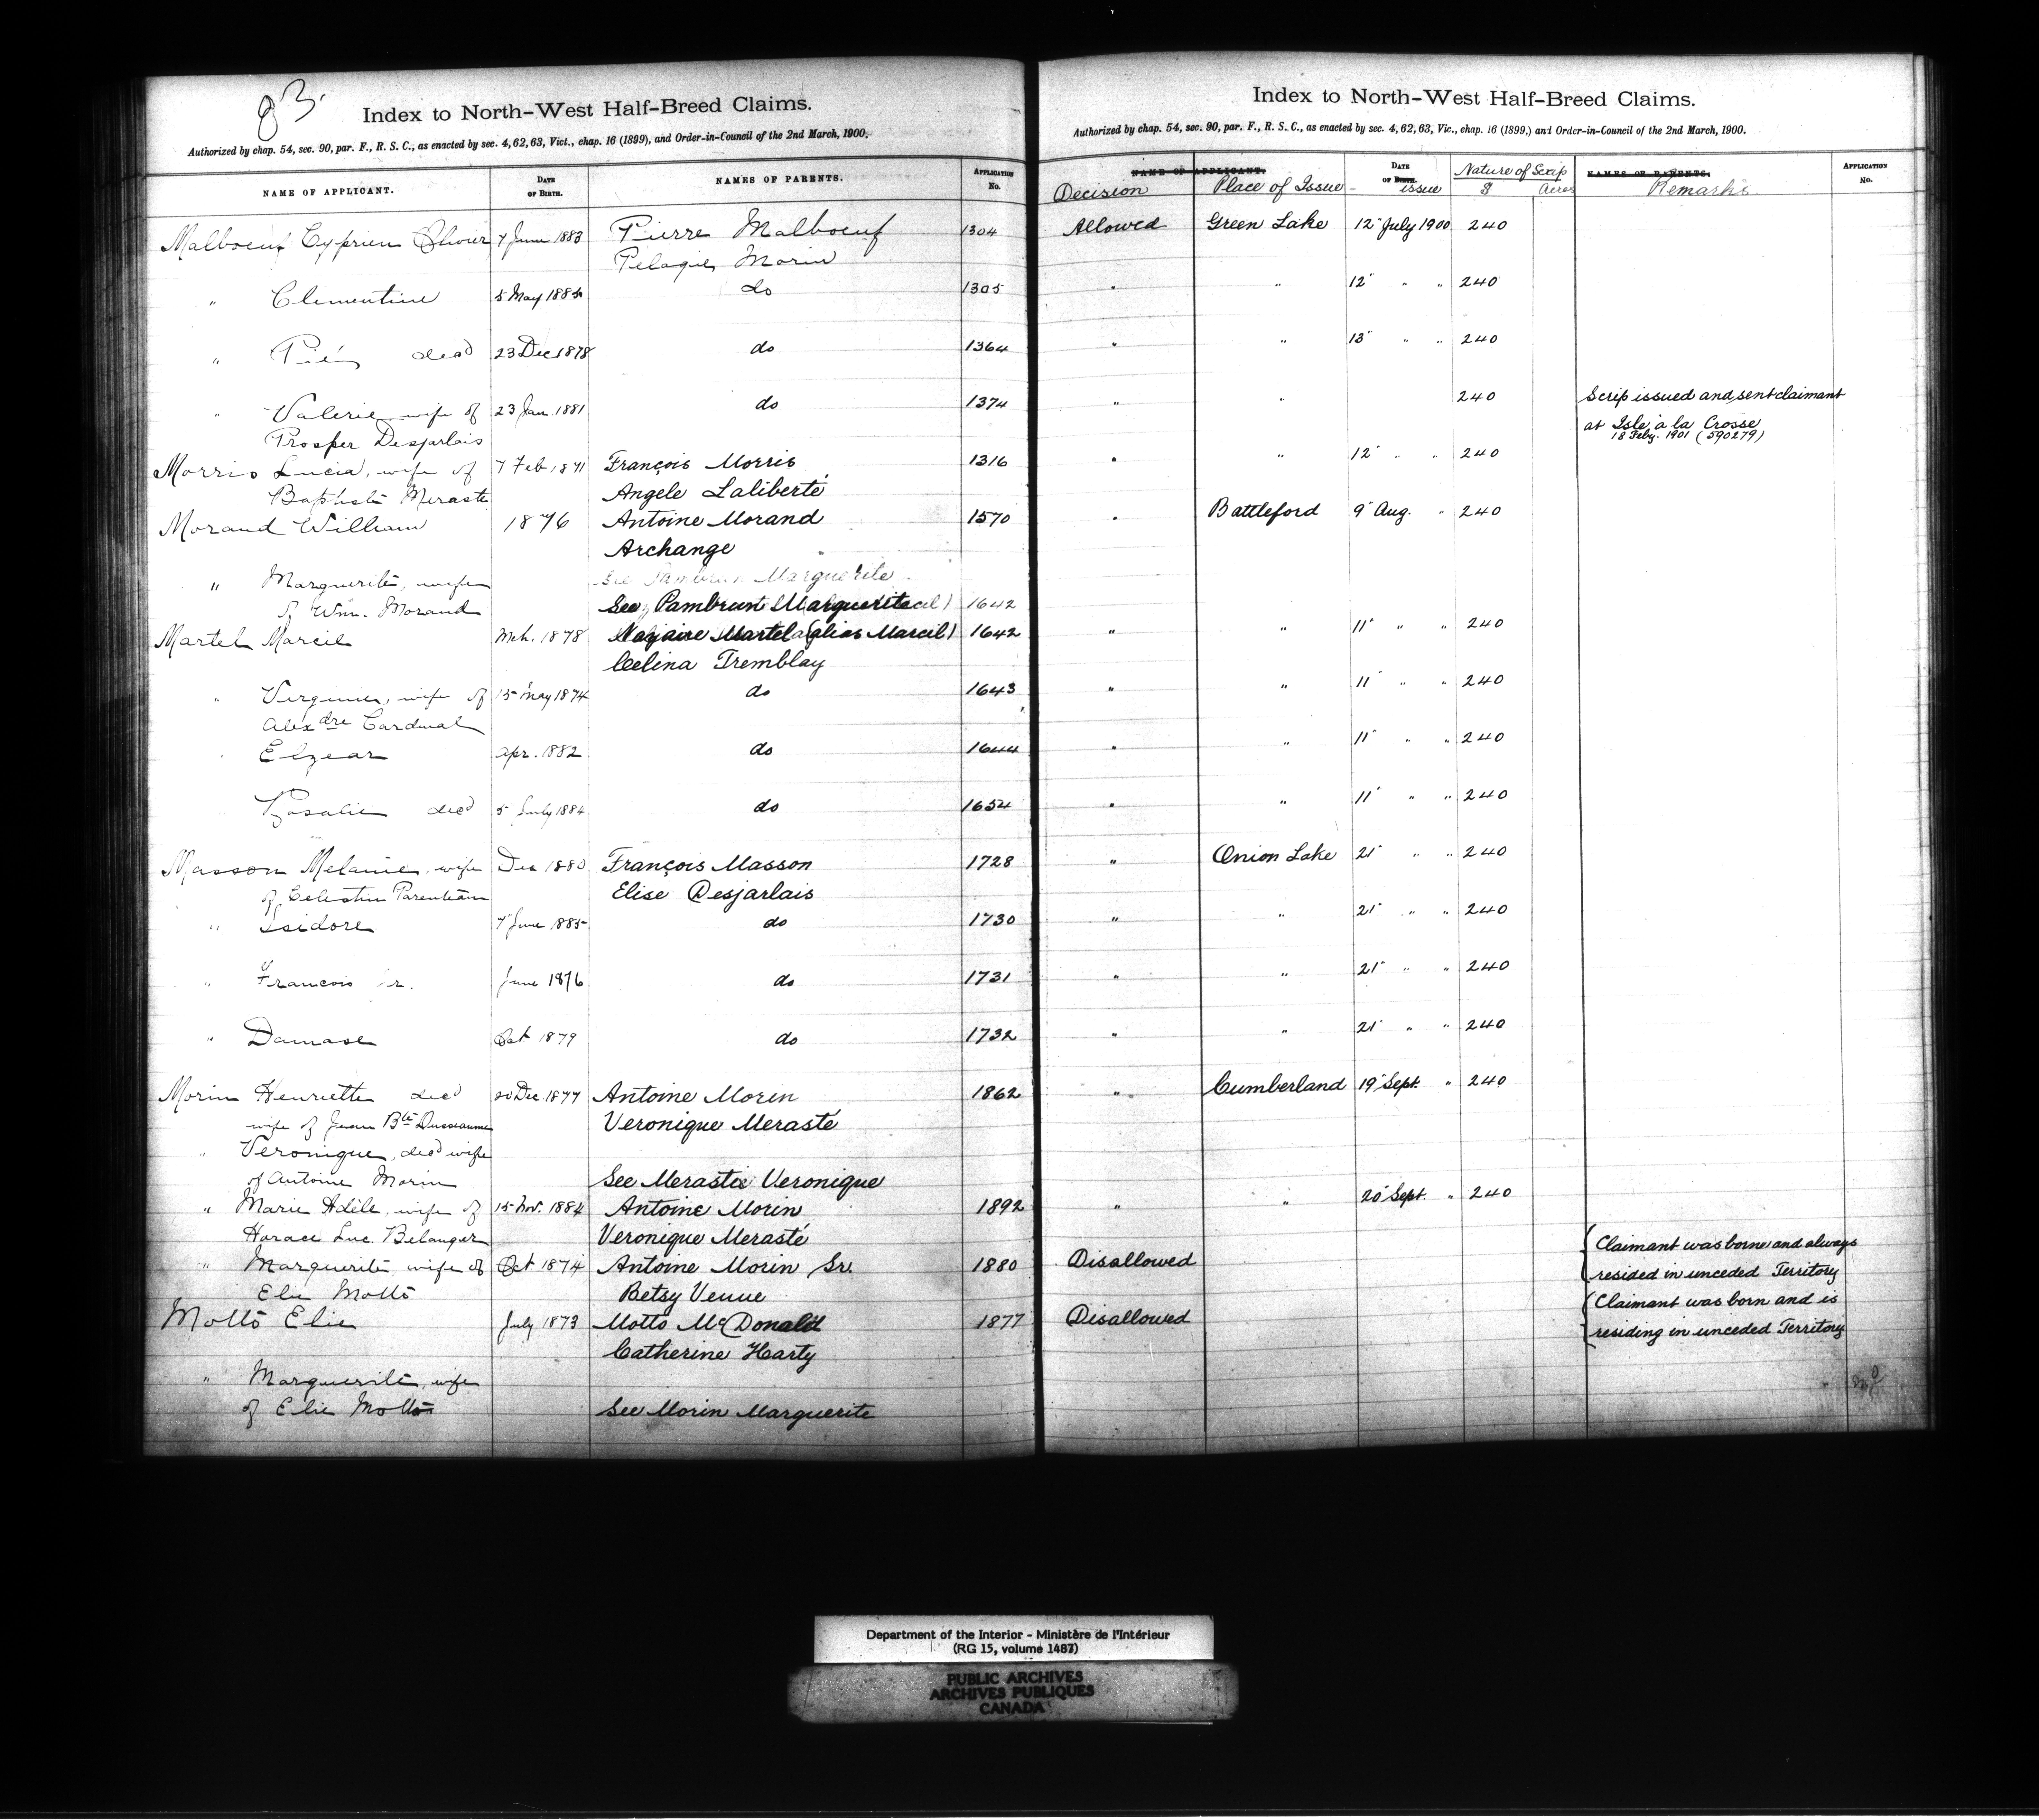 83.
Index to North-West Half-Breed Claims.
Authorized by chap. 54, sec. 90, par. F., R. S. C., as enacted by sec. 4, 62, 63, Vict., chap. 16 (1899), and Order-in-Council of the 2nd March, 1900.
NAME OF APPLICANT. DATE OF BIRTH. NAMES OF PARENTS. APPLICATION No.
Malboeuf Cyprien Olivier 7 June 1883 Pierre Malboeuf 1304
Pelagie Morin
" Clementine 5 May 1885 do 1305
" Pié dead 23 Dec 1878 do 1364
" Valerie wife of 23 Jan. 1881 do 1374
Prosper Desjarlais
Morris Lucia, wife of 7 Feb 1871 François Morris 1316
Baptiste Meraste Angele Laliberté
Morand William 1876 Antoine Morand 1570
Archange
" Marguerite, wife See Pambrun Marguerite
of Wm. Morand See Pambrun Marguerite 1642
Martel Marcil Mch. 1878 Nazaire Martel (alias Marcil) 1642
Celina Tremblay
" Virginie, wife of 15 May 1874 do 1643
Alexdre Cardinal
Elzear Apr. 1882 do 1644
Rosalie decd 5 July 1884 do 1654
Masson Melanie, wife Dec 1880 François Masson 1728
of Celestin Parenteau Elise Desjarlais
" Isidore 7 June 1885 do 1730
" Francois Jr. June 1876 do 1731
" Damase Oct 1879 do 1732
Morin Henriette decd 20 Dec. 1877 Antoine Morin 1862
wife of Jean Bte Dusseaume Veronique Merasté
" Veronique, decd wife
of Antoine Morin See Merastie Veronique
" Marie Adèle, wife of 15 Nov. 1884 Antoine Morin 1892
Horace Luc. Belanger Veronique Merasté
" Marguerite wife of Oct 1874 Antoine Morin Sr. 1880
Elie Motto Betsy Venne
Motto Elie July 1873 Motto McDonald 1877
Catherine Harty
" Marguerite, wife
of Elie Motto See Morin Marguerite
Index to North-West Half-Breed Claims.
Authorized by chap. 54, sec. 90, par. F., R. S. C., as enacted by sec. 4, 62, 63, Vic., chap. 16 (1899,) and Order-in-Council of the 2nd March, 1900.
NAME OF APPLICANT. DATE OF BIRTH. Nature of Scrip NAMES OF PARENTS. APPLICATION No.
Decision Place of Issue issue $ Acres Remarks
Allowed Green Lake 12" July 1900 240
" " 12" " " 240
" " 13" " " 240
" " 240 Scrip issued and sent claimant
at Isle à la Crosse
18 Feby. 1901 (590279)
" " 12" " " 240
" Battleford 9" Aug. " 240
" " 11" " " 240
" " 11" " " 240
" " 11" " " 240
" " 11" " " 240
" Onion Lake 21" " " 240
" " 21" " " 240
" " 21" " " 240
" " 21" " " 240
" Cumberland 19" Sept. " 240
" " 20" Sept. " 240
Claimant was borne and always
Disallowed resided in unceded Territory
Claimant was born and is
Disallowed residing in unceded Territory
Department of the Interior - Ministère de l'Intérieur
(RG 15, volume 1487)
PUBLIC ARCHIVES
ARCHIVES PUBLIQUES
CANADA